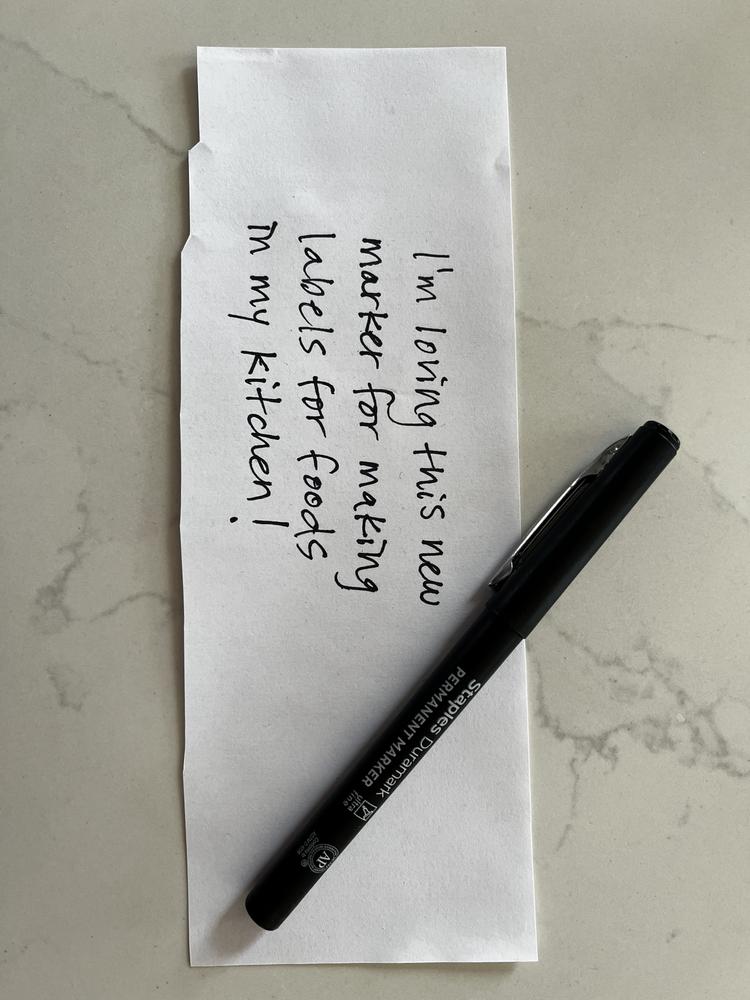 I'm loving this new
marker for making
labels for foods
in my kitchen!
Staples Duramark
PERMANENT MARKER
ultra
fine
AP